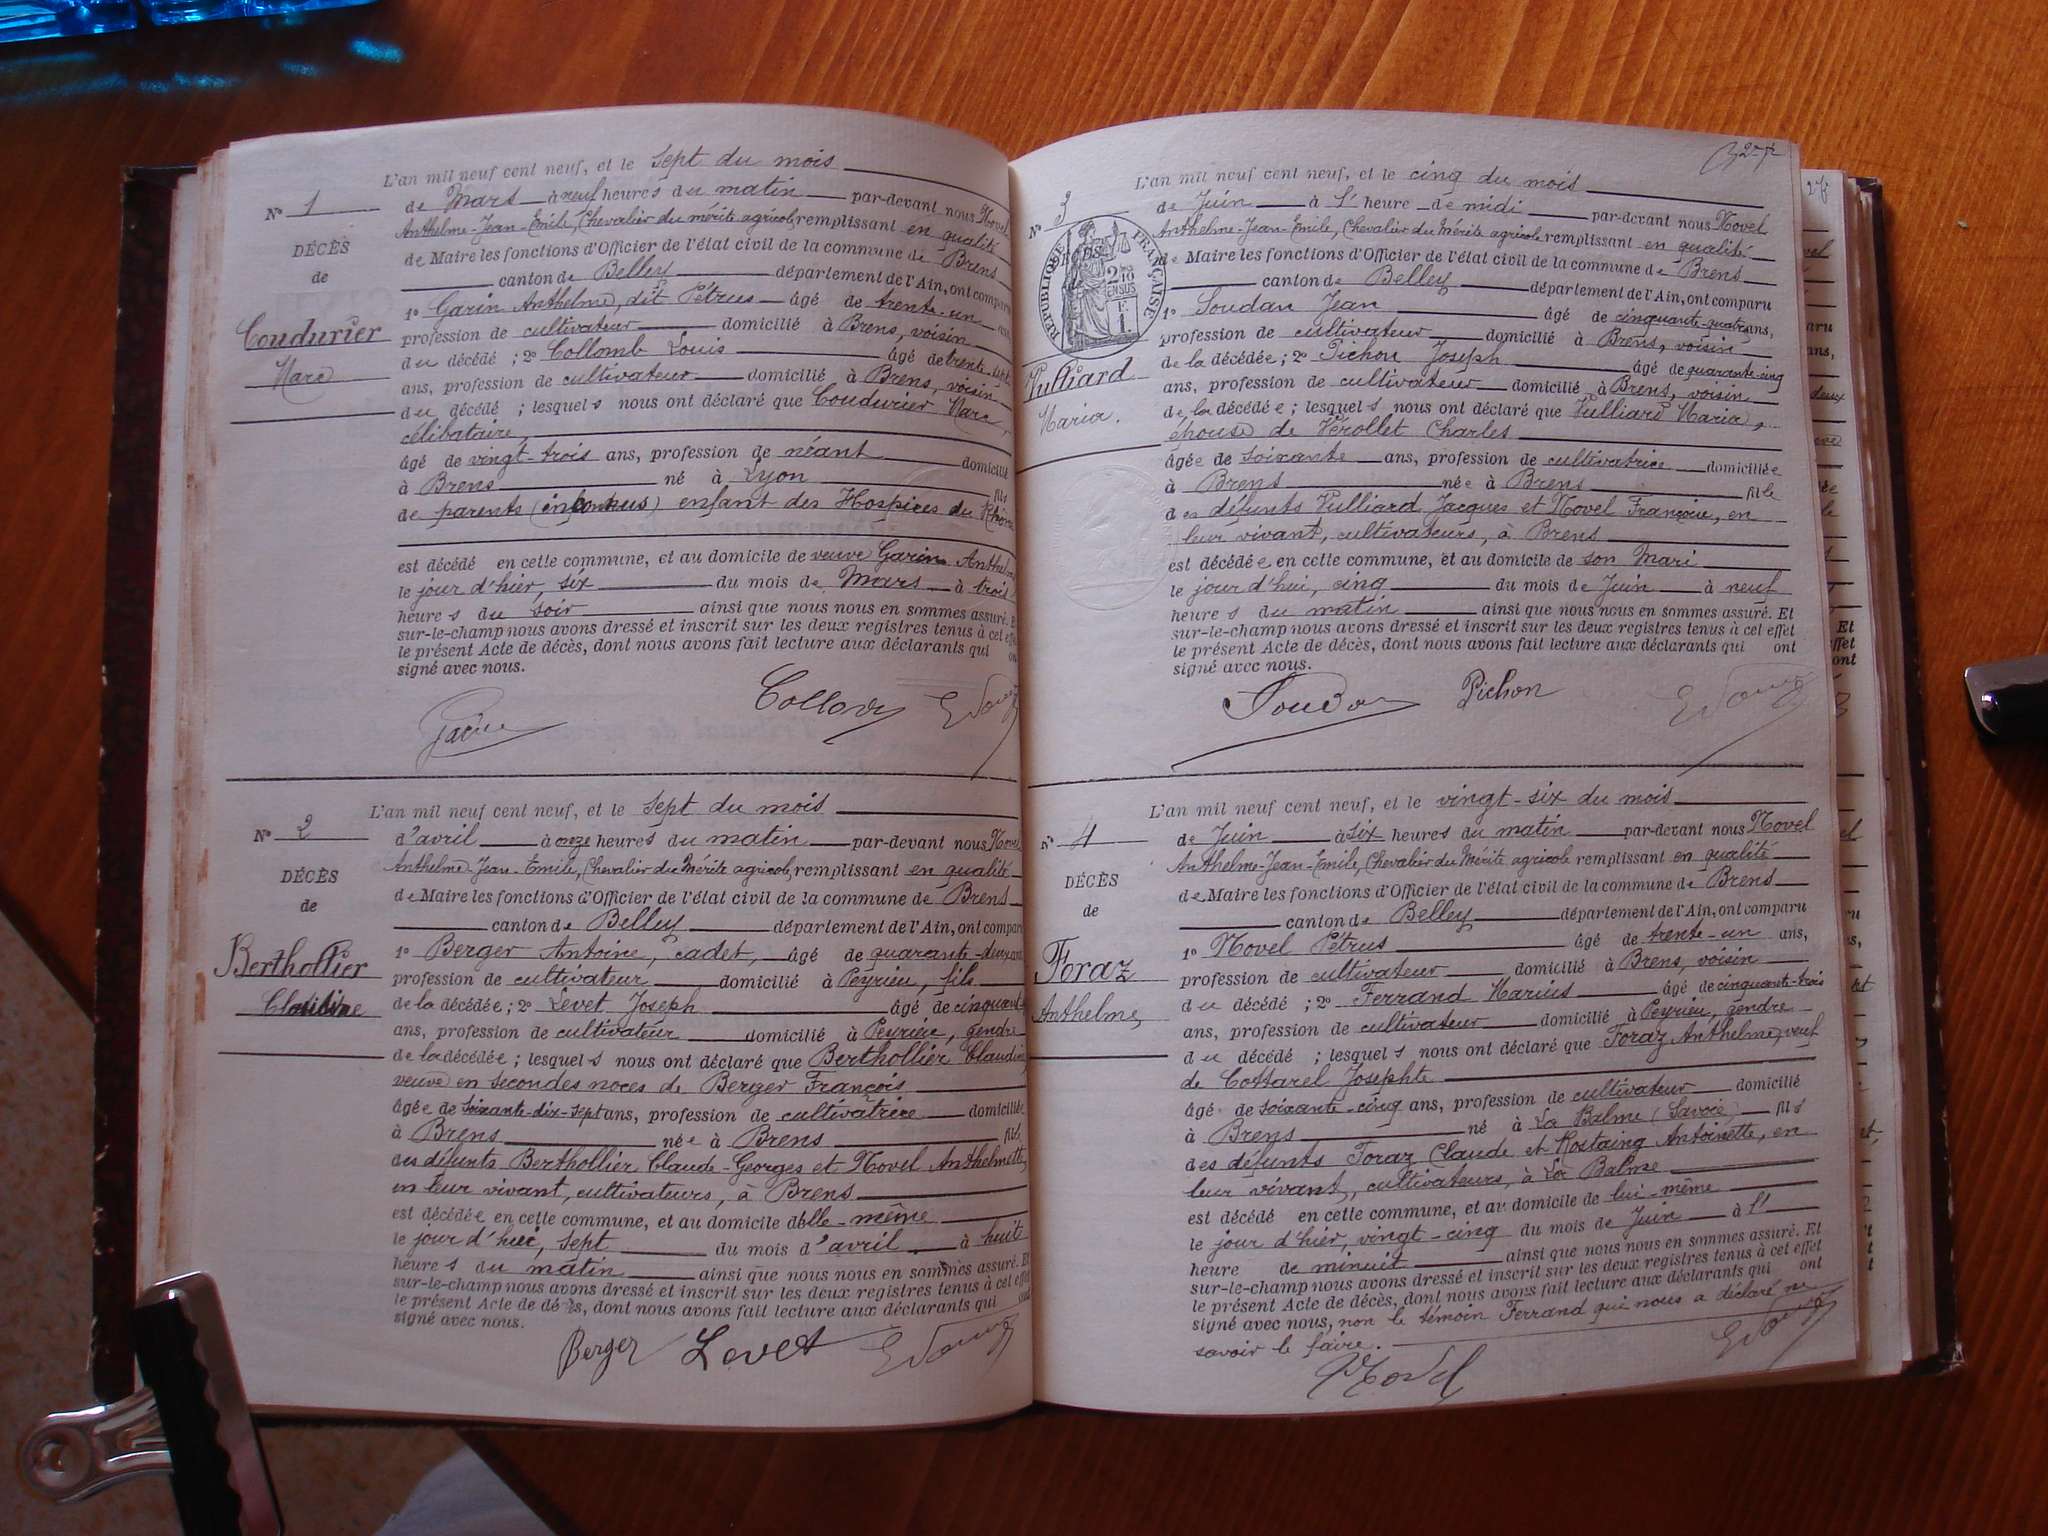 L'an mil neuf cent neuf, et le sept du mois
N° 1
de Mars à neuf heures du matin par-devant nous Novel
Anthelme-Jean-Emile, Chevalier du mérite agricole, remplissant en qualité
DÉCÈS
de Maire les fonctions d'Officier de l'état civil de la commune de Brens
de
canton de Belley département de l'Ain, ont comparu
1° Garin Anthelme, dit Pétrus âgé de trente-un ans,
Coudurier
profession de cultivateur domicilié à Brens, voisin
du décédé ; 2° Collomb Louis âgé de trente-
Marc
ans, profession de cultivateur domicilié à Brens, voisin
du décédé ; lesquels nous ont déclaré que Coudurier Marc,
célibataire
âgé de vingt-trois ans, profession de néant domicilié
à Brens né à Lyon fils
de parents (inconnus) enfant des Hospices du Rhône
est décédé en cette commune, et au domicile de veuve Garin Anthelme
le jour d'hier, six du mois de Mars à trois
heures du soir ainsi que nous nous en sommes assuré. Et
sur-le-champ nous avons dressé et inscrit sur les deux registres tenus à cet effet
le présent Acte de décès, dont nous avons fait lecture aux déclarants qui ont
signé avec nous.
Garin Collomb
L'an mil neuf cent neuf, et le sept du mois
N° 2
d'avril à onze heures du matin par-devant nous Novel
Anthelme-Jean-Emile, Chevalier du Mérite agricole, remplissant en qualité
DÉCÈS
de Maire les fonctions d'Officier de l'état civil de la commune de Brens
de
canton de Belley département de l'Ain, ont comparu
1° Berger Antoine, cadet, âgé de quarante-deux ans
Berthollier
profession de cultivateur domicilié à Peyrieu, fils
Claudine
de la décédée ; 2° Levet Joseph âgé de cinquante
ans, profession de cultivateur domicilié à Peyrieu, gendre
de la décédée ; lesquels nous ont déclaré que Berthollier Claudine
veuve en secondes noces de Berger François
âgée de soixante-dix-sept ans, profession de cultivatrice domiciliée
à Brens née à Brens fille
des défunts Berthollier Claude-Georges et Novel Anthelmette
en leur vivant, cultivateurs, à Brens
est décédée en cette commune, et au domicile d'elle-même
le jour d'hui, sept du mois d'avril à huit
heures du matin ainsi que nous nous en sommes assuré. Et
sur-le-champ nous avons dressé et inscrit sur les deux registres tenus à cet effet
le présent Acte de décès, dont nous avons fait lecture aux déclarants qui ont
signé avec nous.
Berger Levet
L'an mil neuf cent neuf, et le cinq du mois
N° 3
de Juin à l' heure de midi par-devant nous Novel
Anthelme-Jean-Emile, Chevalier du Mérite agricole remplissant en qualité
RÉPUBLIQUE FRANÇAISE
de Maire les fonctions d'Officier de l'état civil de la commune de Brens
canton de Belley département de l'Ain, ont comparu
1° Soudan Jean âgé de cinquante-quatre ans,
profession de cultivateur domicilié à Brens, voisin
de la décédée ; 2° Pichon Joseph âgé de quarante-cinq
Vulliard
ans, profession de cultivateur domicilié à Brens, voisin
Maria.
de la décédée ; lesquels nous ont déclaré que Vulliard Maria,
épouse de Vérollet Charles
âgée de soixante ans, profession de cultivatrice domiciliée
à Brens née à Brens fille
des défunts Vulliard Jacques et Novel Françoise, en
leur vivant, cultivateurs, à Brens
est décédée en cette commune, et au domicile de son Mari
le jour d'hui, cinq du mois de Juin à neuf
heures du matin ainsi que nous nous en sommes assuré. Et
sur-le-champ nous avons dressé et inscrit sur les deux registres tenus à cet effet
le présent Acte de décès, dont nous avons fait lecture aux déclarants qui ont
signé avec nous.
Soudan Pichon
L'an mil neuf cent neuf, et le vingt-six du mois
N° 4
de Juin à six heures du matin par-devant nous Novel
Anthelme-Jean-Emile, Chevalier du Mérite agricole remplissant en qualité
DÉCÈS
de Maire les fonctions d'Officier de l'état civil de la commune de Brens
de
canton de Belley département de l'Ain, ont comparu
1° Novel Pétrus âgé de trente-un ans,
Foraz
profession de cultivateur domicilié à Brens, voisin
Anthelme
du décédé ; 2° Ferrand Marius âgé de cinquante-trois
ans, profession de cultivateur domicilié à Peyrieu, gendre
du décédé ; lesquels nous ont déclaré que Foraz Anthelme, veuf
de Cottarel Josephte
âgé de soixante-cinq ans, profession de cultivateur domicilié
à Brens né à La Balme (Savoie) fils
des défunts Foraz Claude et Rostaing Antoinette, en
leur vivant, cultivateurs, à La Balme
est décédé en cette commune, et au domicile de lui-même
le jour d'hier, vingt-cinq du mois de Juin à l'
heure de minuit ainsi que nous nous en sommes assuré. Et
sur-le-champ nous avons dressé et inscrit sur les deux registres tenus à cet effet
le présent Acte de décès, dont nous avons fait lecture aux déclarants qui ont
signé avec nous, non le témoin Ferrand qui nous a déclaré ne
savoir le faire.
Novel